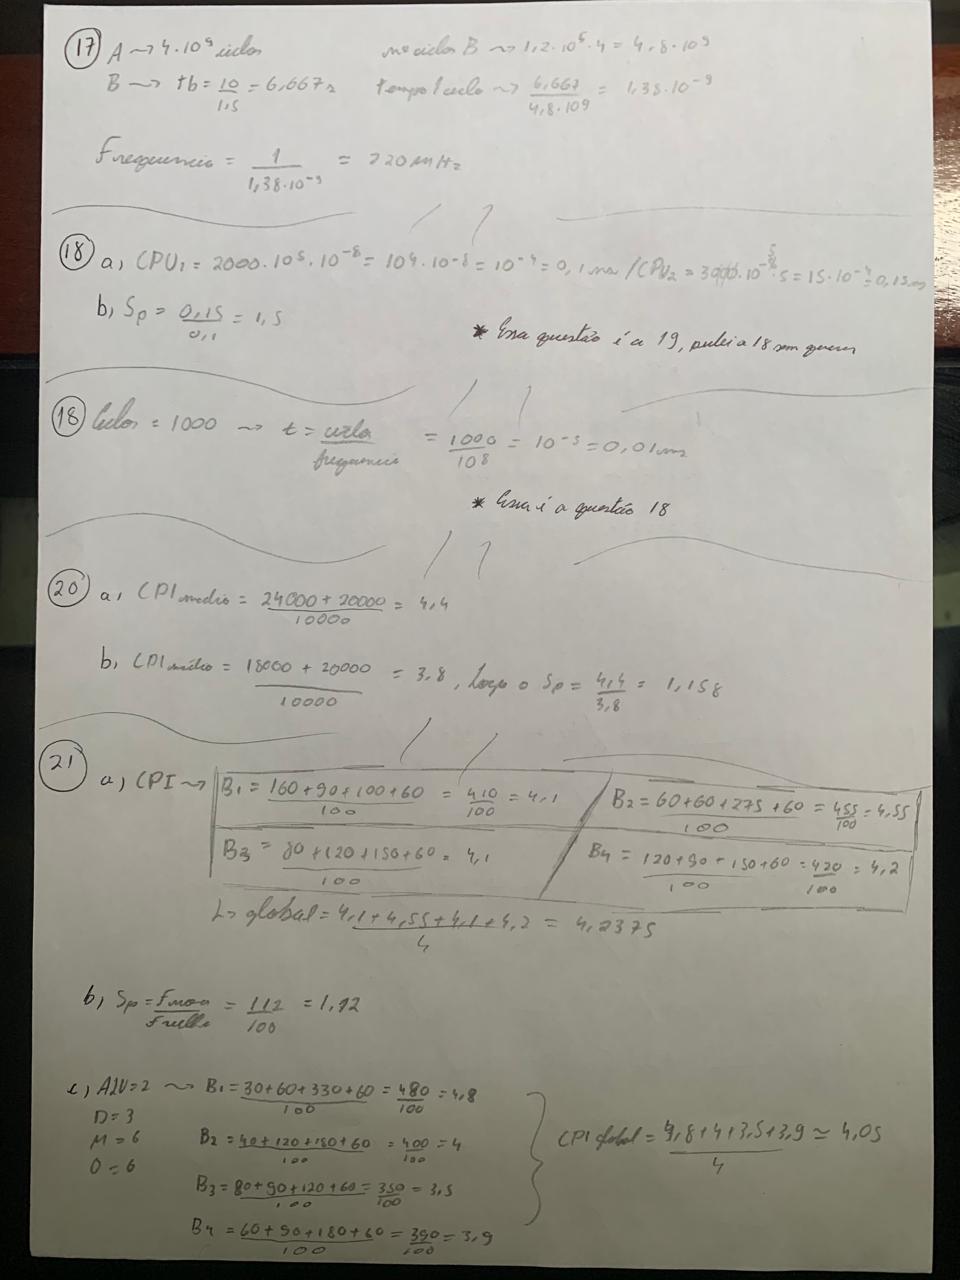 17 A → 4·10⁹ ciclos nº ciclos B → 1,2·10⁹·4 = 4,8·10⁹
B → tb = 10/1,5 = 6,667s tempo/ciclo → 6,667/4,8·109 = 1,38·10⁻⁹
Frequencia = 1/1,38·10⁻⁹ = 720MHz
18 a) CPU₁ = 2000·10⁵·10⁻⁸ = 10⁴·10⁻⁸ = 10⁻⁴ = 0,1ms / CPU₂ = ·5 = 15·10⁻⁴ = 0,15ms
b) Sp = 0,15/0,1 = 1,5
* Essa questão é a 19, pulei a 18 sem querer
18 Ciclos = 1000 → t = ciclos/frequencia = 1000/10⁸ = 10⁻⁵ = 0,01ms
* Essa é a questão 18
20 a) CPI medio = 24000 + 20000/10000 = 4,4
b) CPI médio = 18000 + 20000/10000 = 3,8, Logo o Sp = 4,4/3,8 = 1,158
21 a) CPI → B₁ = 160+90+100+60/100 = 410/100 = 4,1 B₂ = 60+60+275+60/100 = 455/100 = 4,55
B₃ = 80+120+150+60/100 = 4,1 B₄ = 120+90+150+60/100 = 420/100 = 4,2
↳ global = 4,1+4,55+4,1+4,2/4 = 4,2375
b) Sp = Fnova/Fvelha = 112/100 = 1,12
c) ALU=2 → B₁ = 30+60+330+60/100 = 480/100 = 4,8
D=3
M=6 B₂ = 40+120+180+60/100 = 400/100 = 4 CPI global = 4,8+4+3,5+3,9/4 ≃ 4,05
O=6
B₃ = 80+90+120+60/100 = 350/100 = 3,5
B₄ = 60+90+180+60/100 = 390/100 = 3,9